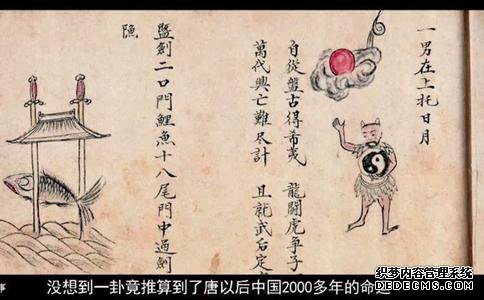 一男在上托日月
自從盤古得希夷 龍鬪虎爭子
萬代興亡難盡計 且就武后定
劍二口門鯉魚十八尾門中過劍
事
没想到一卦竟推算到了唐以后中国2000多年的命